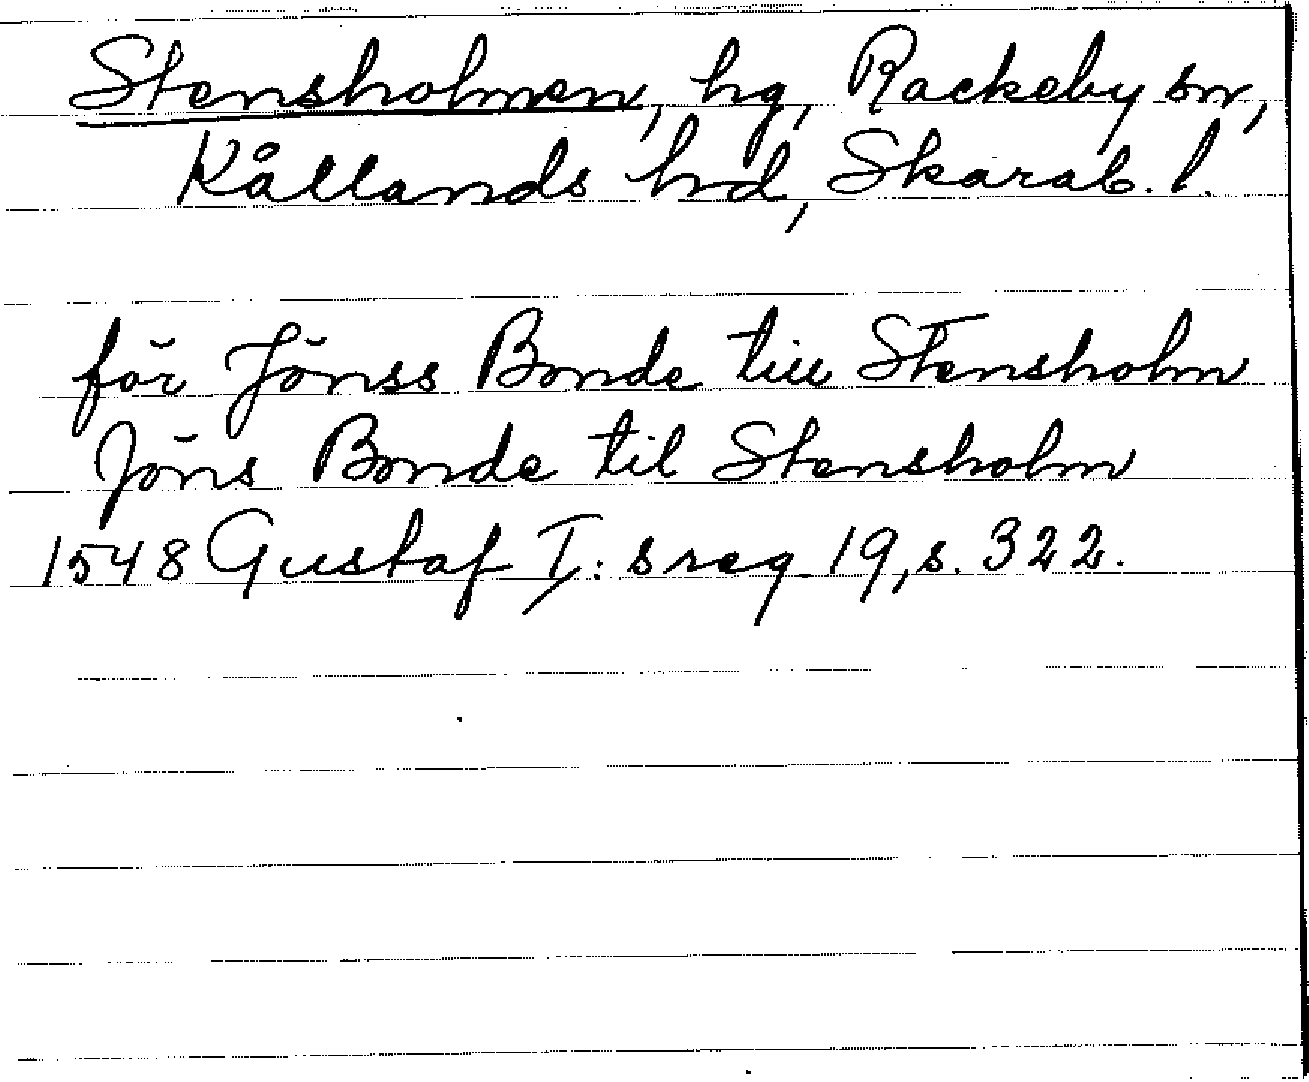 Stensholmen, hg, Rackeby sn,
Kållands hd, Skarab. l.
för Jönss Bonde till Stensholm
Jöns Bonde til Stensholm
1548 Gustaf I: s reg 19, s. 322.